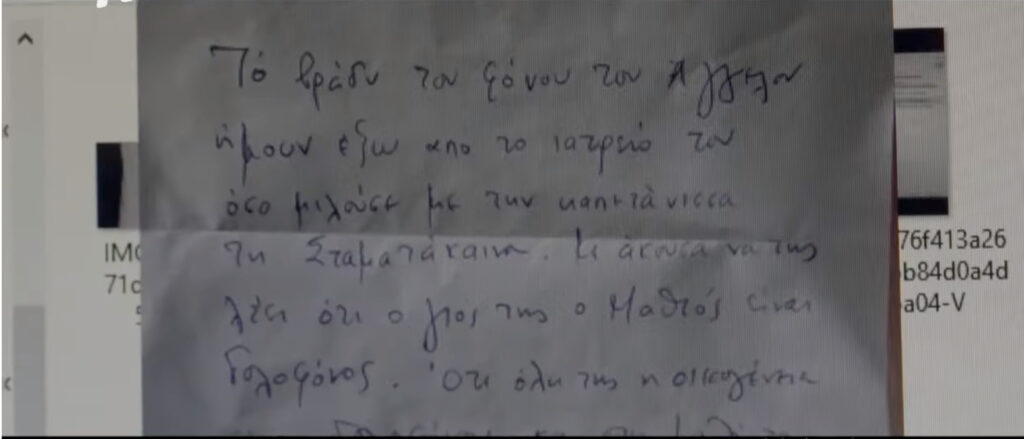 Τό βράδυ του φόνου του Άγγελου
ήμουν έξω απο το ιατρείο του
όσο μιλούσε με την καπετάνισσα
τη Σταματάκαινα. Κι άκουσα να της
λέει ότι ο γιός της ο Μαθιός είναι
δολοφόνος. Ότι όλη της η οικογένεια
IMG
76f413a26
71c
b84d0a4d
a04-V